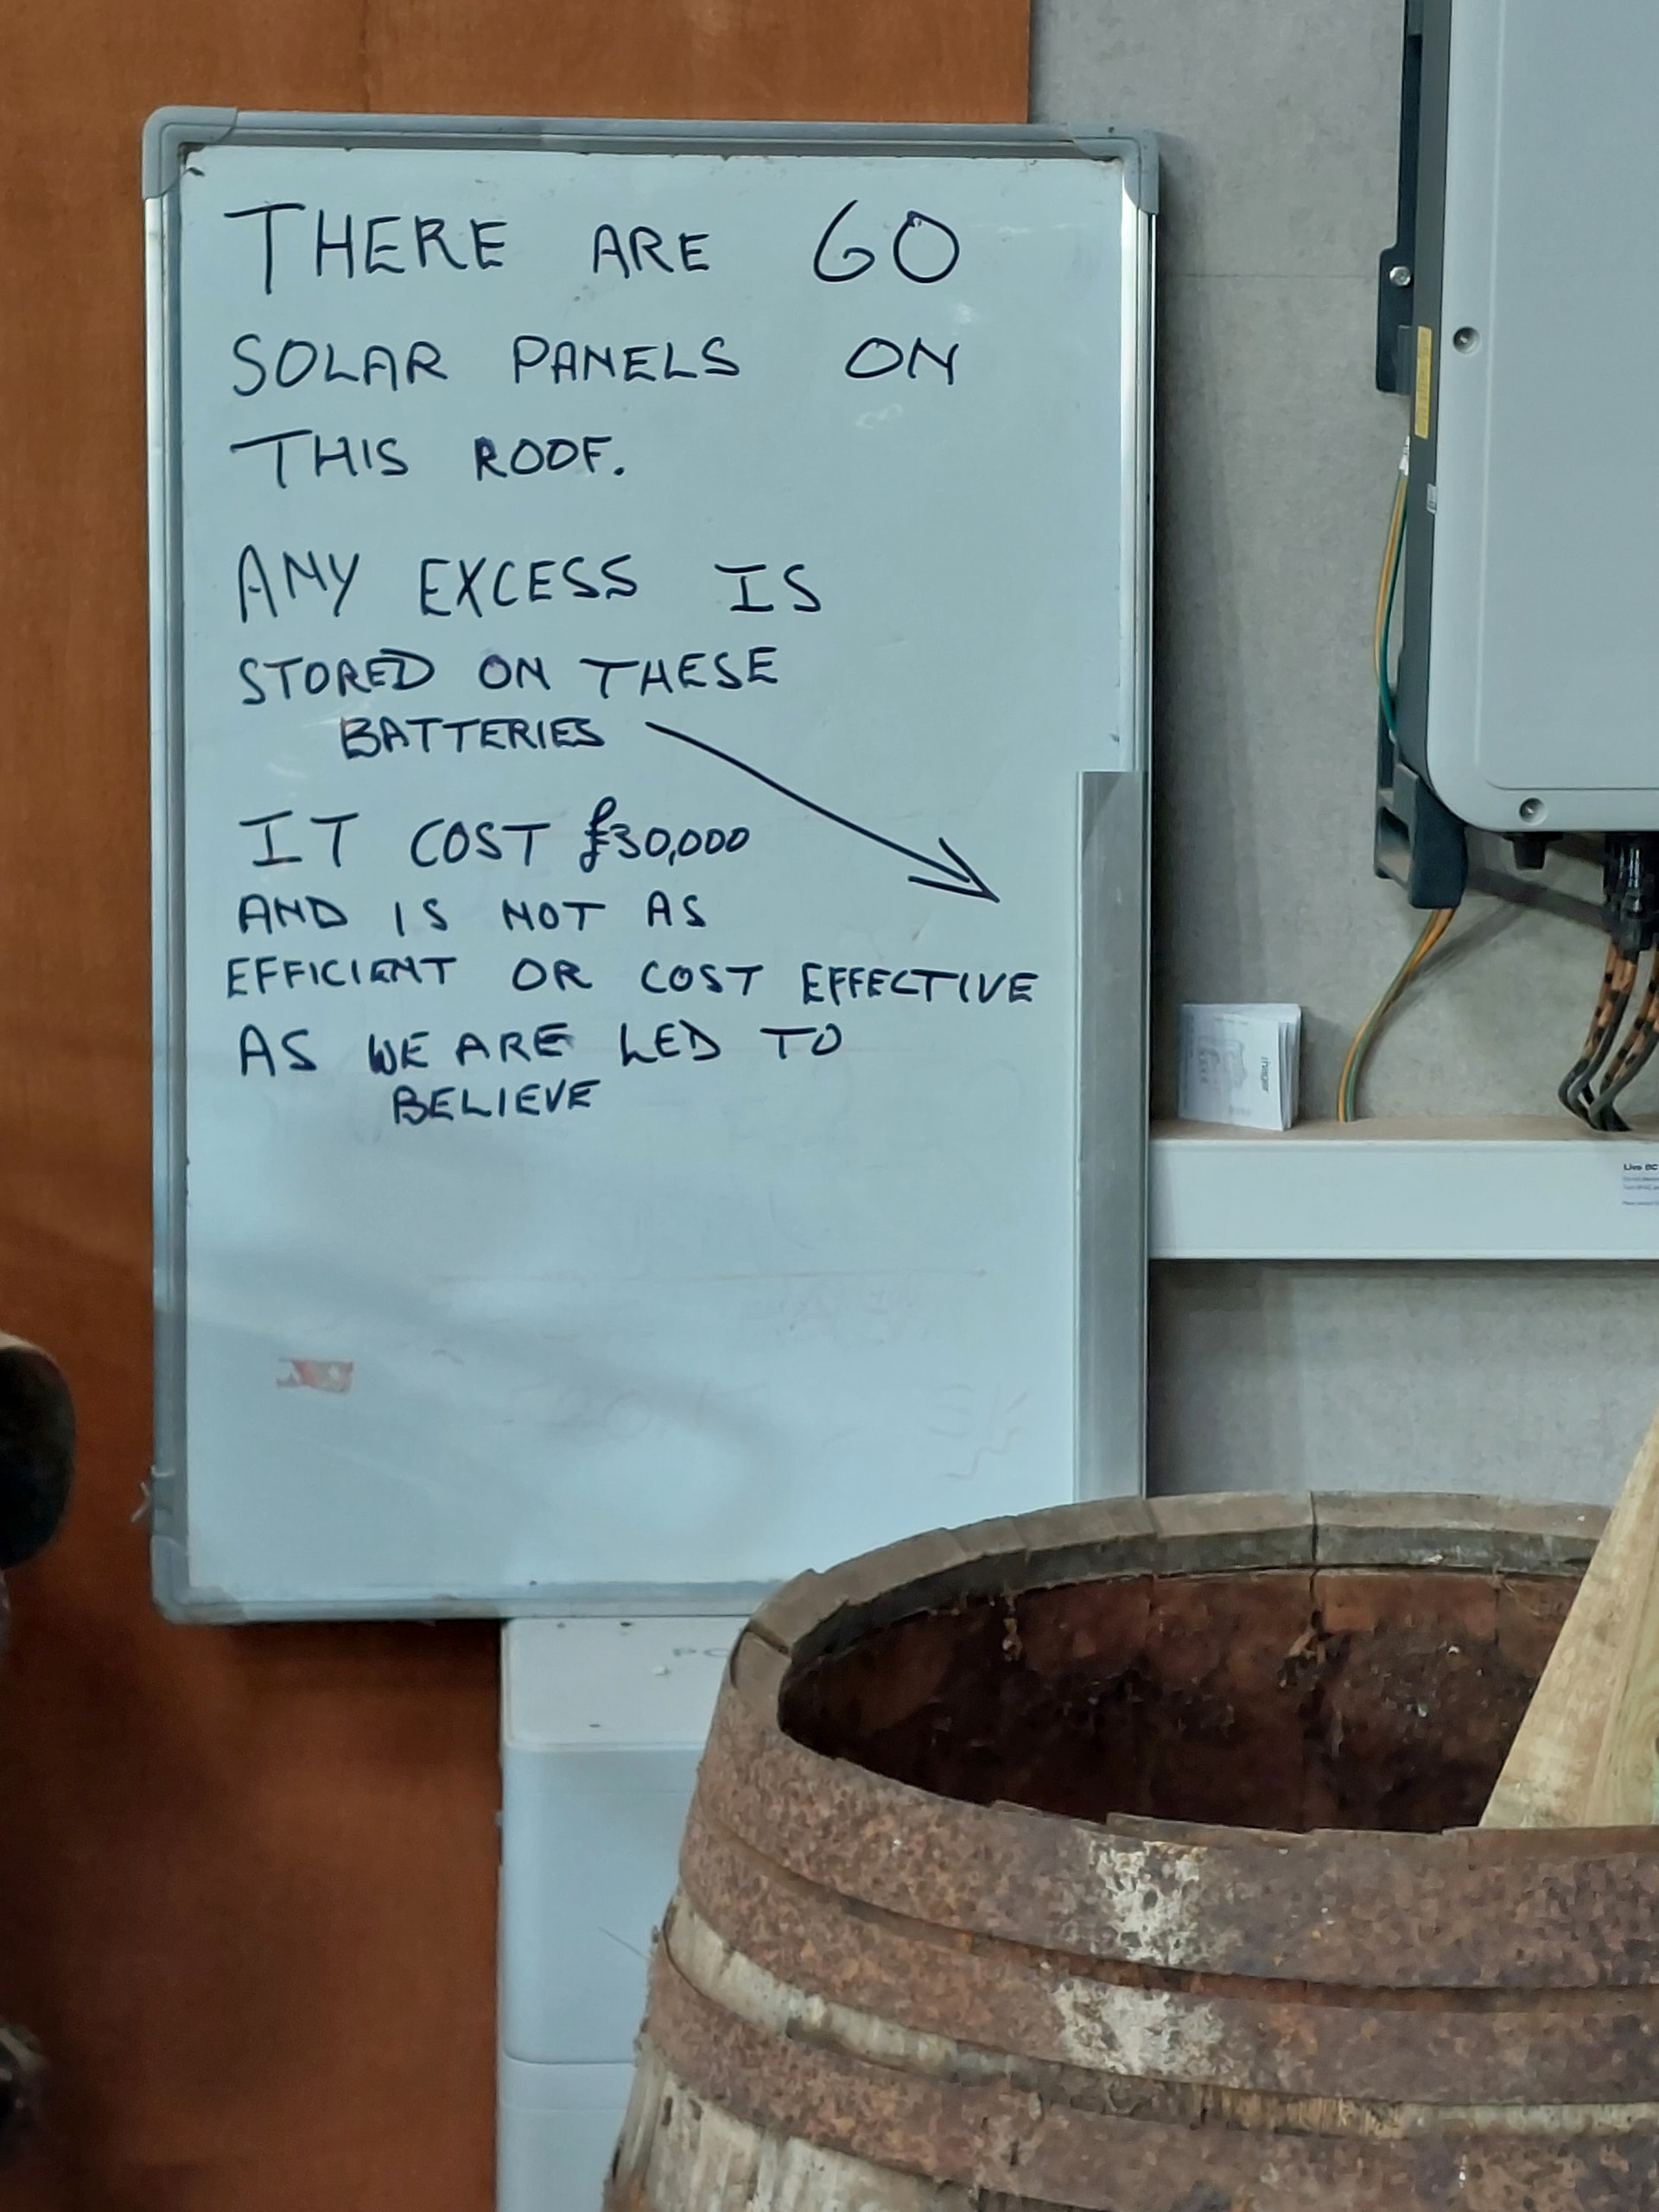 THERE ARE 60
SOLAR PANELS ON
THIS ROOF.
ANY EXCESS IS
STORED ON THESE
BATTERIES
IT COST £30,000
AND IS NOT AS
EFFICIENT OR COST EFFECTIVE
AS WE ARE LED TO
BELIEVE